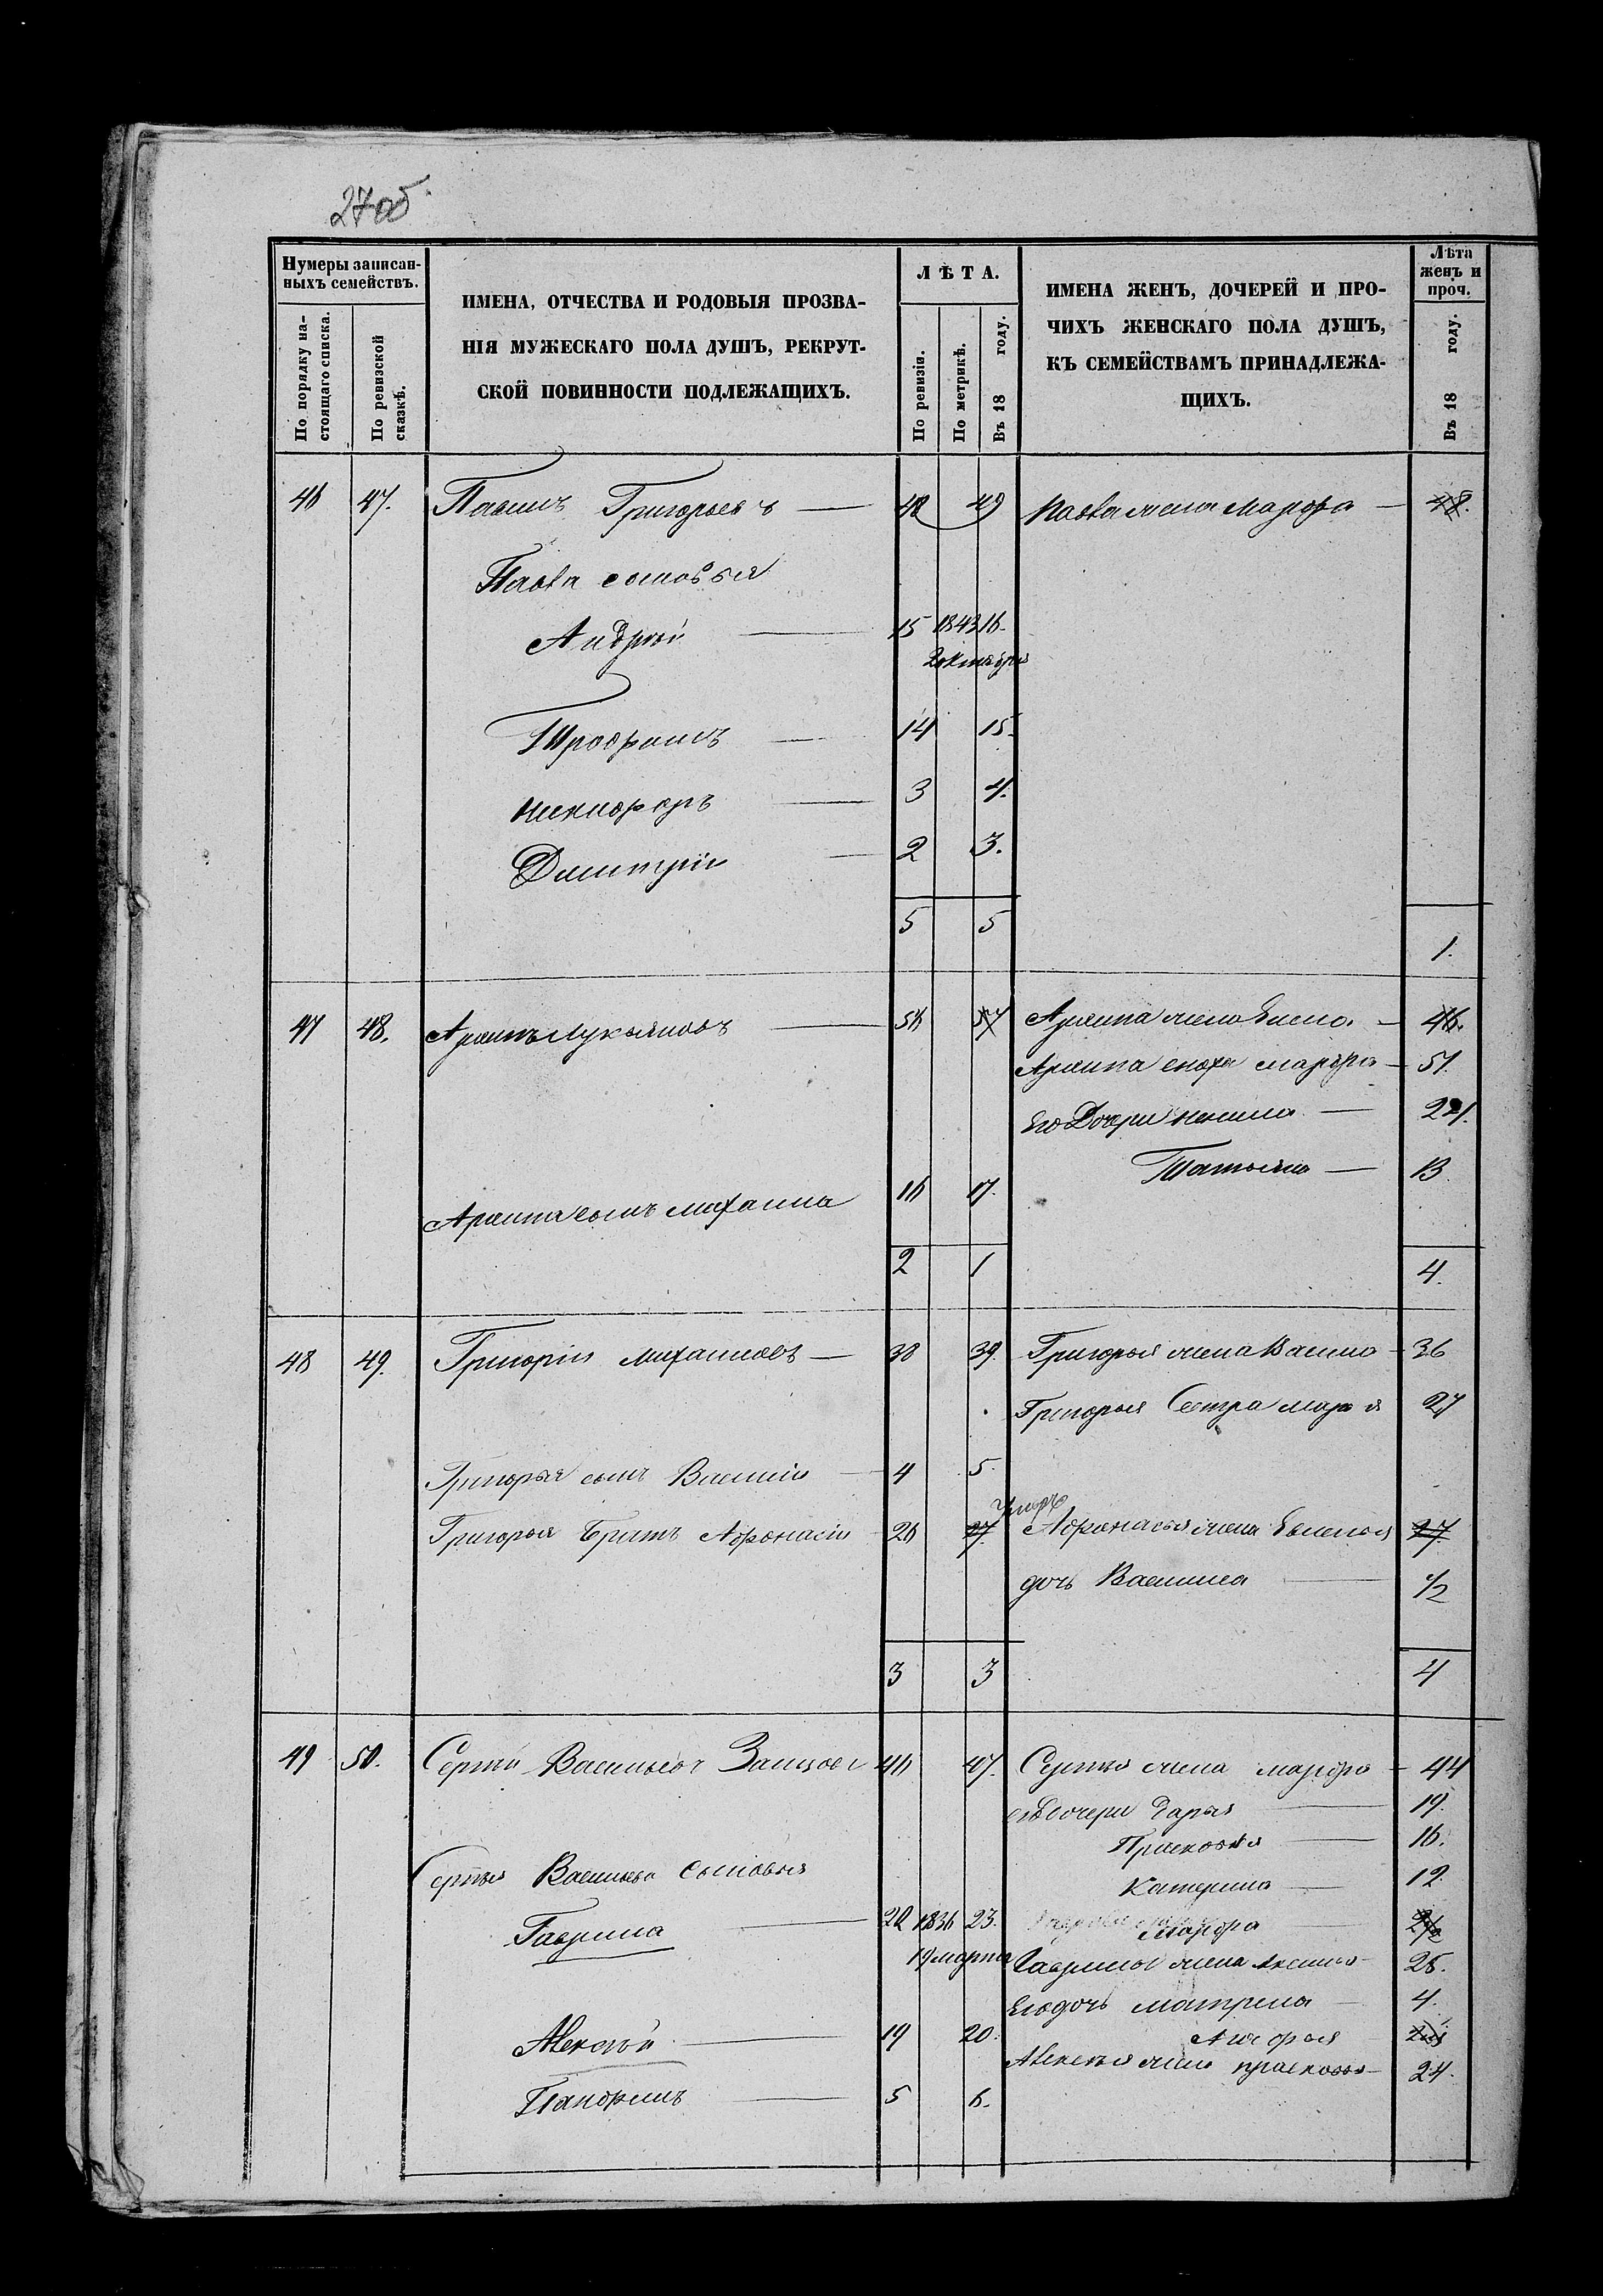 27об.
Нумеры записан-
ныхъ семействъ.
По порядку на-
стоящаго списка.
По ревизской
сказкѣ.
ИМЕНА, ОТЧЕСТВА И РОДОВЫЯ ПРОЗВА-
НІЯ МУЖЕСКАГО ПОЛА ДУШЪ, РЕКРУТ-
СКОЙ ПОВИННОСТИ ПОДЛЕЖАЩИХЪ.
ЛѢТА.
По ревизіи.
По метрикѣ.
Въ 18 году.
ИМЕНА ЖЕНЪ, ДОЧЕРЕЙ И ПРО-
ЧИХЪ ЖЕНСКАГО ПОЛА ДУШЪ,
КЪ СЕМЕЙСТВАМЪ ПРИНАДЛЕЖА-
ЩИХЪ.
Лѣта
женъ и
проч.
Въ 18 году.
46 47. Павилъ Григорьевъ — 48 49 Павла жена Марфа — 48.
Павла сыновья
Андрей — 15 1843 16.
2 октября
Трофимъ — 14 15.
Никифоръ — 3 4.
Дмитрій — 2 3.
5 5
1.
47 48. Архипъ Лукьяновъ — 56 57 Архипа жена — 46.
Архипа сноха Марфа — 51.
Его Дочери —
Татьяна — 13.
Архипа сынъ Михаила 16 17.
2 1 4.
48 49. Григорій Михаиловъ — 38 39. Григорья жена Васи — 36
Григорья Сестра Марья 27
Григорья сынъ Василій — 4 5.
Григорья Братъ Афонасій 26 27. Афонасья жена 27.
дочь Василиса — 1/2
3 3 4
49 50. Сергѣй Васильевъ Заицовъ 46 47. Сергѣя жена Марфа — 44
его дочери Дарья — 19.
Прасковья — 16.
Сергѣя Васильева Сыновья
Катерина — 12.
Гаврила — 20 1836 23. Марфа
19 марта Гаврилы жена Аксинья — 25.
Его дочь Матрена — 4.
Алексѣй — 19 20.
Алексѣя жена Прасковья — 24.
Панфилъ — 5 6.